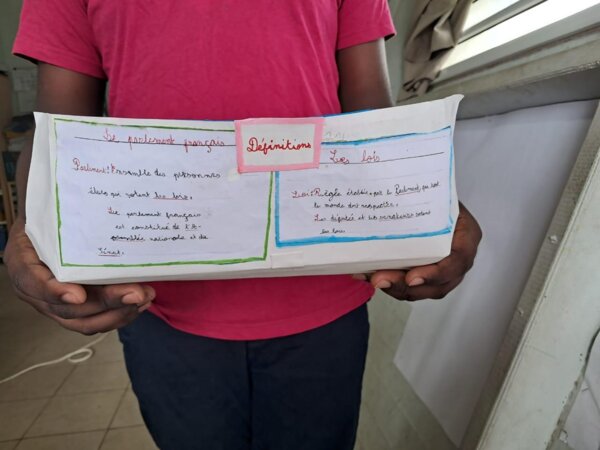 Le parlement français
Parlement : Ensemble des personnes
élus qui votent les lois.
Le parlement français
est constitué de l'As-
semblée nationale et du
Sénat.
Définitions
Les lois
Loi : Règle établie par le Parlement, que tout
le monde doit respecter.
Les députés et les sénateurs votent
les lois.